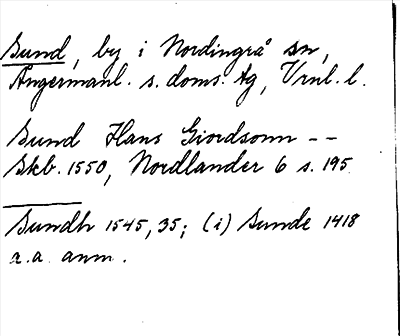 Sund, by i Nordingrå sn,
Ångermanl. s. doms. tg, Vrnl. l.
Sund Hans Giordsonn --
Skb. 1550, Nordlander 6 s. 195
Sundh 1545, 35; (i) Sunde 1418
r. a. anm.